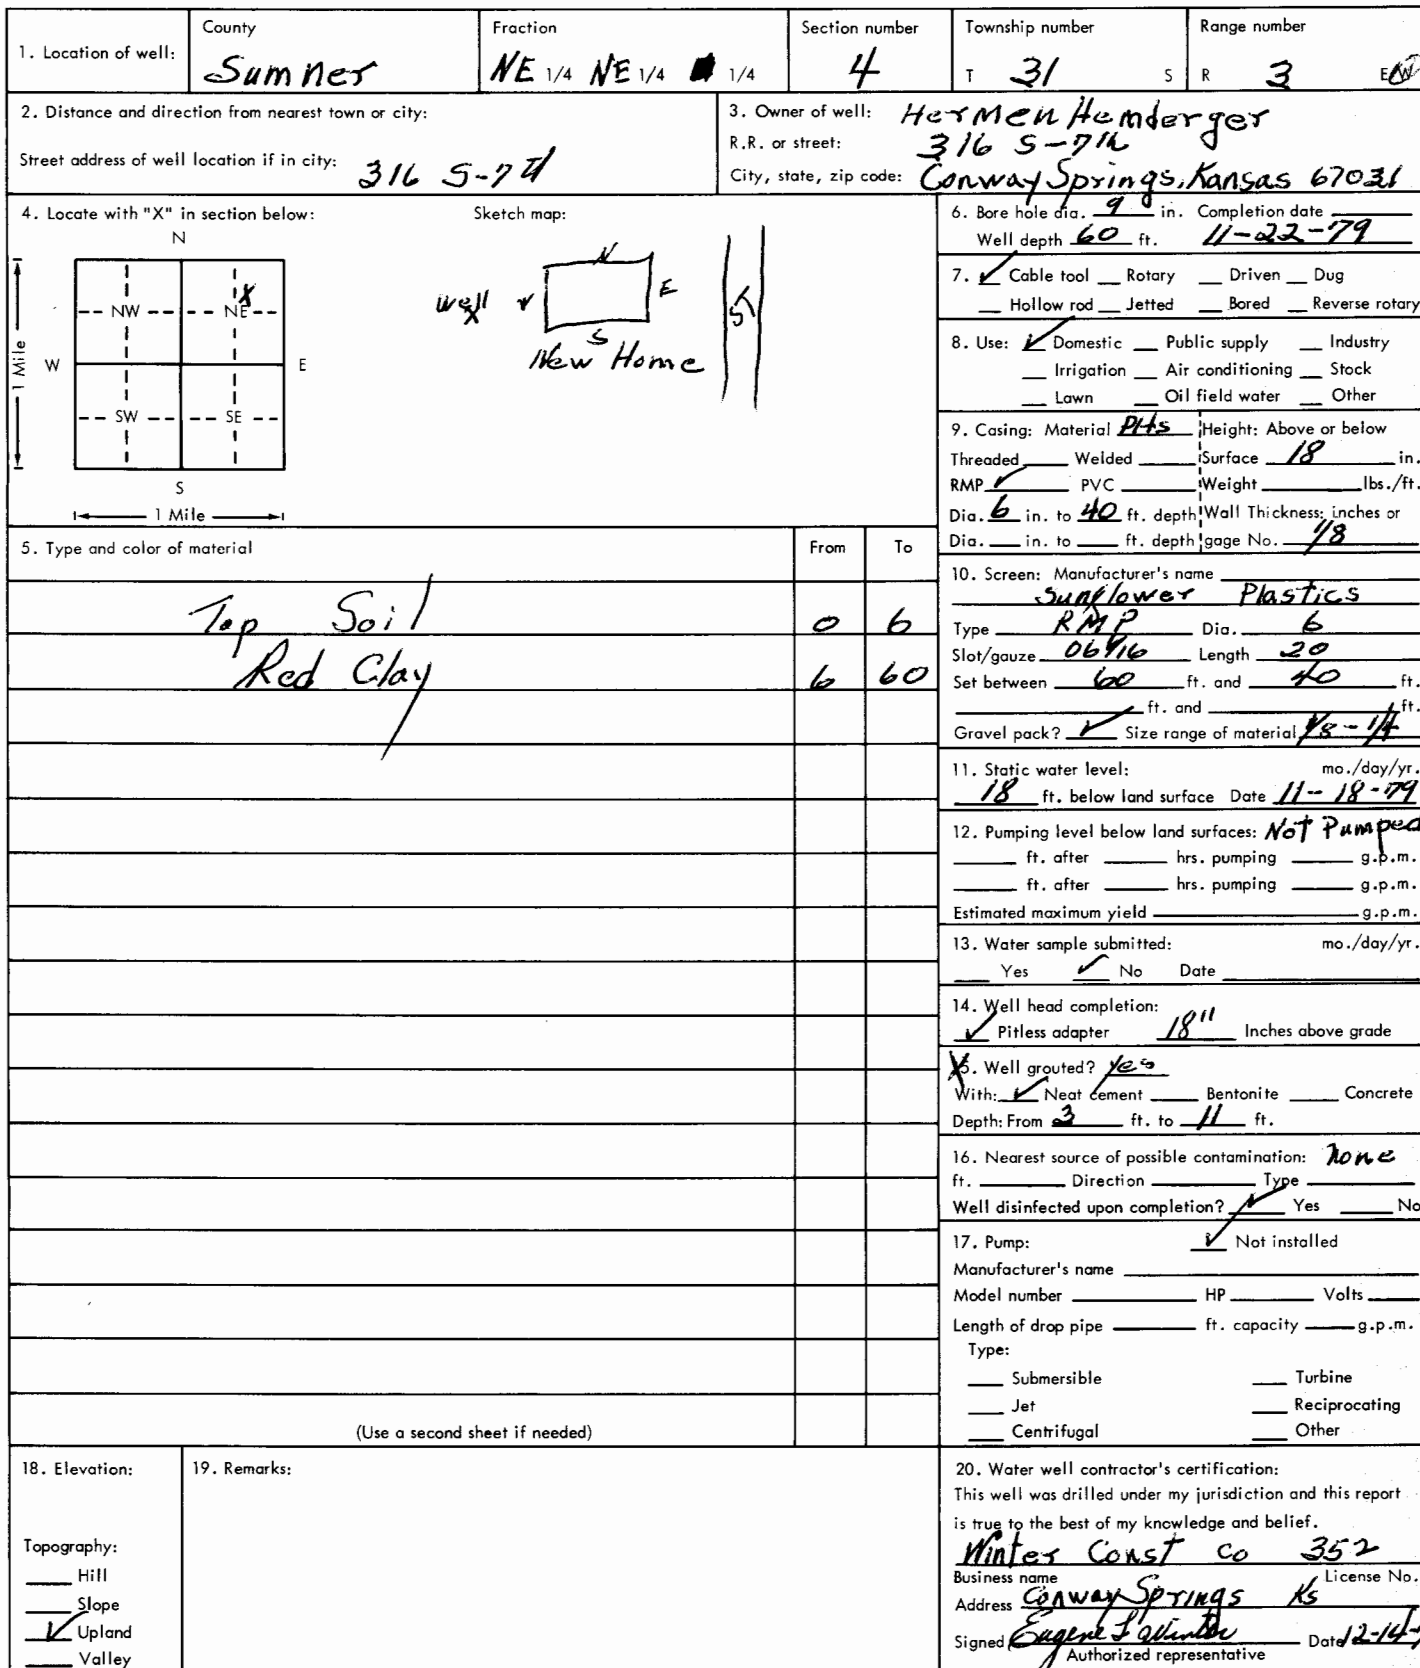 1. Location of well:
County
Sumner
Fraction
NE 1/4 NE 1/4 1/4
Section number
4
Township number
T 31 S
Range number
R 3 E/W
2. Distance and direction from nearest town or city:
Street address of well location if in city: 316 S-7th
3. Owner of well: Hermen Hemberger
R.R. or street: 316 S-7th
City, state, zip code: Conway Springs, Kansas 67031
4. Locate with "X" in section below:
N
NW NE X
W E
SW SE
S
1 Mile
1 Mile
Sketch map:
well X
N
E
S
New Home
ST
5. Type and color of material From To
Top Soil 0 6
Red Clay 6 60
(Use a second sheet if needed)
6. Bore hole dia. 9 in. Completion date
Well depth 60 ft. 11-22-79
7. ✓ Cable tool __ Rotary __ Driven __ Dug
__ Hollow rod __ Jetted __ Bored __ Reverse rotary
8. Use: ✓ Domestic __ Public supply __ Industry
__ Irrigation __ Air conditioning __ Stock
__ Lawn __ Oil field water __ Other
9. Casing: Material Height: Above or below
Threaded __ Welded __ Surface 18 in.
RMP ✓ PVC __ Weight __ lbs./ft.
Dia. 6 in. to 40 ft. depth Wall Thickness: inches or
Dia. __ in. to __ ft. depth gage No. 1/8
10. Screen: Manufacturer's name
Sunflower Plastics
Type RMP Dia. 6
Slot/gauze Length 20
Set between 60 ft. and 40 ft.
__ ft. and __ ft.
Gravel pack? ✓ Size range of material 1/8 - 1/4
11. Static water level: mo./day/yr.
18 ft. below land surface Date 11-18-79
12. Pumping level below land surfaces: Not Pumped
__ ft. after __ hrs. pumping __ g.p.m.
__ ft. after __ hrs. pumping __ g.p.m.
Estimated maximum yield __ g.p.m.
13. Water sample submitted: mo./day/yr.
__ Yes ✓ No Date __
14. Well head completion:
✓ Pitless adapter 18" Inches above grade
15. Well grouted? yes
With: ✓ Neat cement __ Bentonite __ Concrete
Depth: From 3 ft. to 11 ft.
16. Nearest source of possible contamination: none
ft. __ Direction __ Type __
Well disinfected upon completion? ✓ Yes __ No
17. Pump: ✓ Not installed
Manufacturer's name __
Model number __ HP __ Volts __
Length of drop pipe __ ft. capacity __ g.p.m.
Type:
__ Submersible __ Turbine
__ Jet __ Reciprocating
__ Centrifugal __ Other
18. Elevation:
Topography:
__ Hill
__ Slope
✓ Upland
__ Valley
19. Remarks:
20. Water well contractor's certification:
This well was drilled under my jurisdiction and this report
is true to the best of my knowledge and belief.
Winter Const Co 352
Business name License No.
Address Conway Springs Ks
Signed Eugene F Winter Date 12-14-
Authorized representative